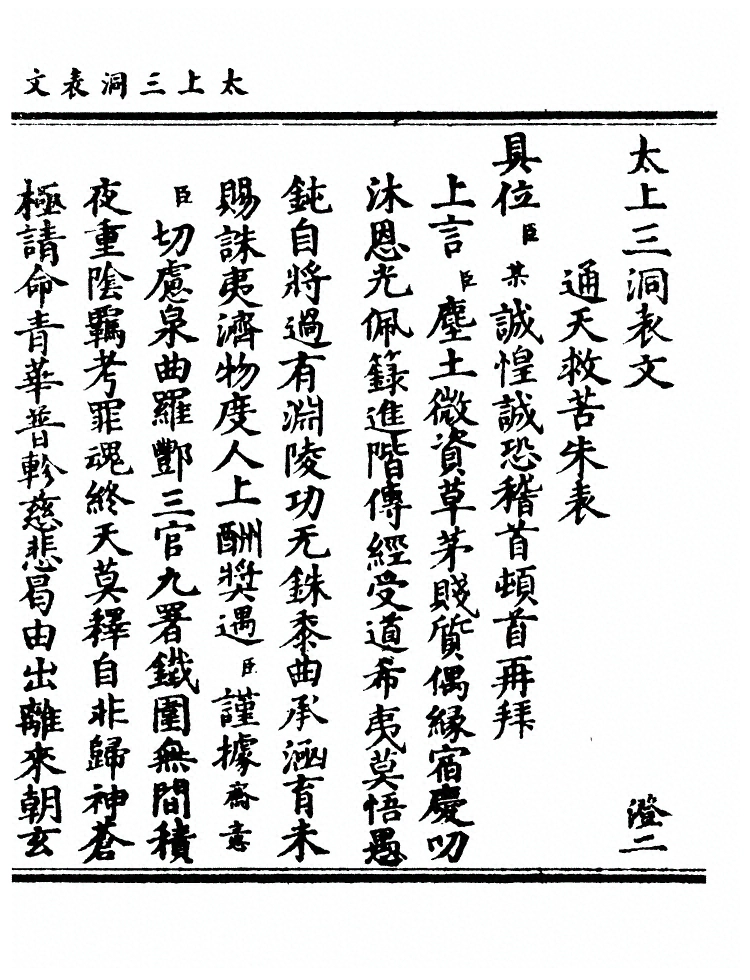 太上三洞表文
太上三洞表文　澄二
通天救苦朱表
具位臣某誠惶誠恐稽首頓首再拜
上言臣塵土微資草茅賤質偶緣宿慶叨
沐恩光佩籙進階傳經受道希夷莫悟愚
鈍自將過有淵陵功无銖黍曲承涵育未
賜誅夷濟物度人上酬獎遇臣謹據齋意
臣切慮泉曲羅酆三官九署鐵圍無間積
夜重陰羈考罪魂終天莫釋自非歸神蒼
極請命青華普軫慈悲曷由出離來朝玄